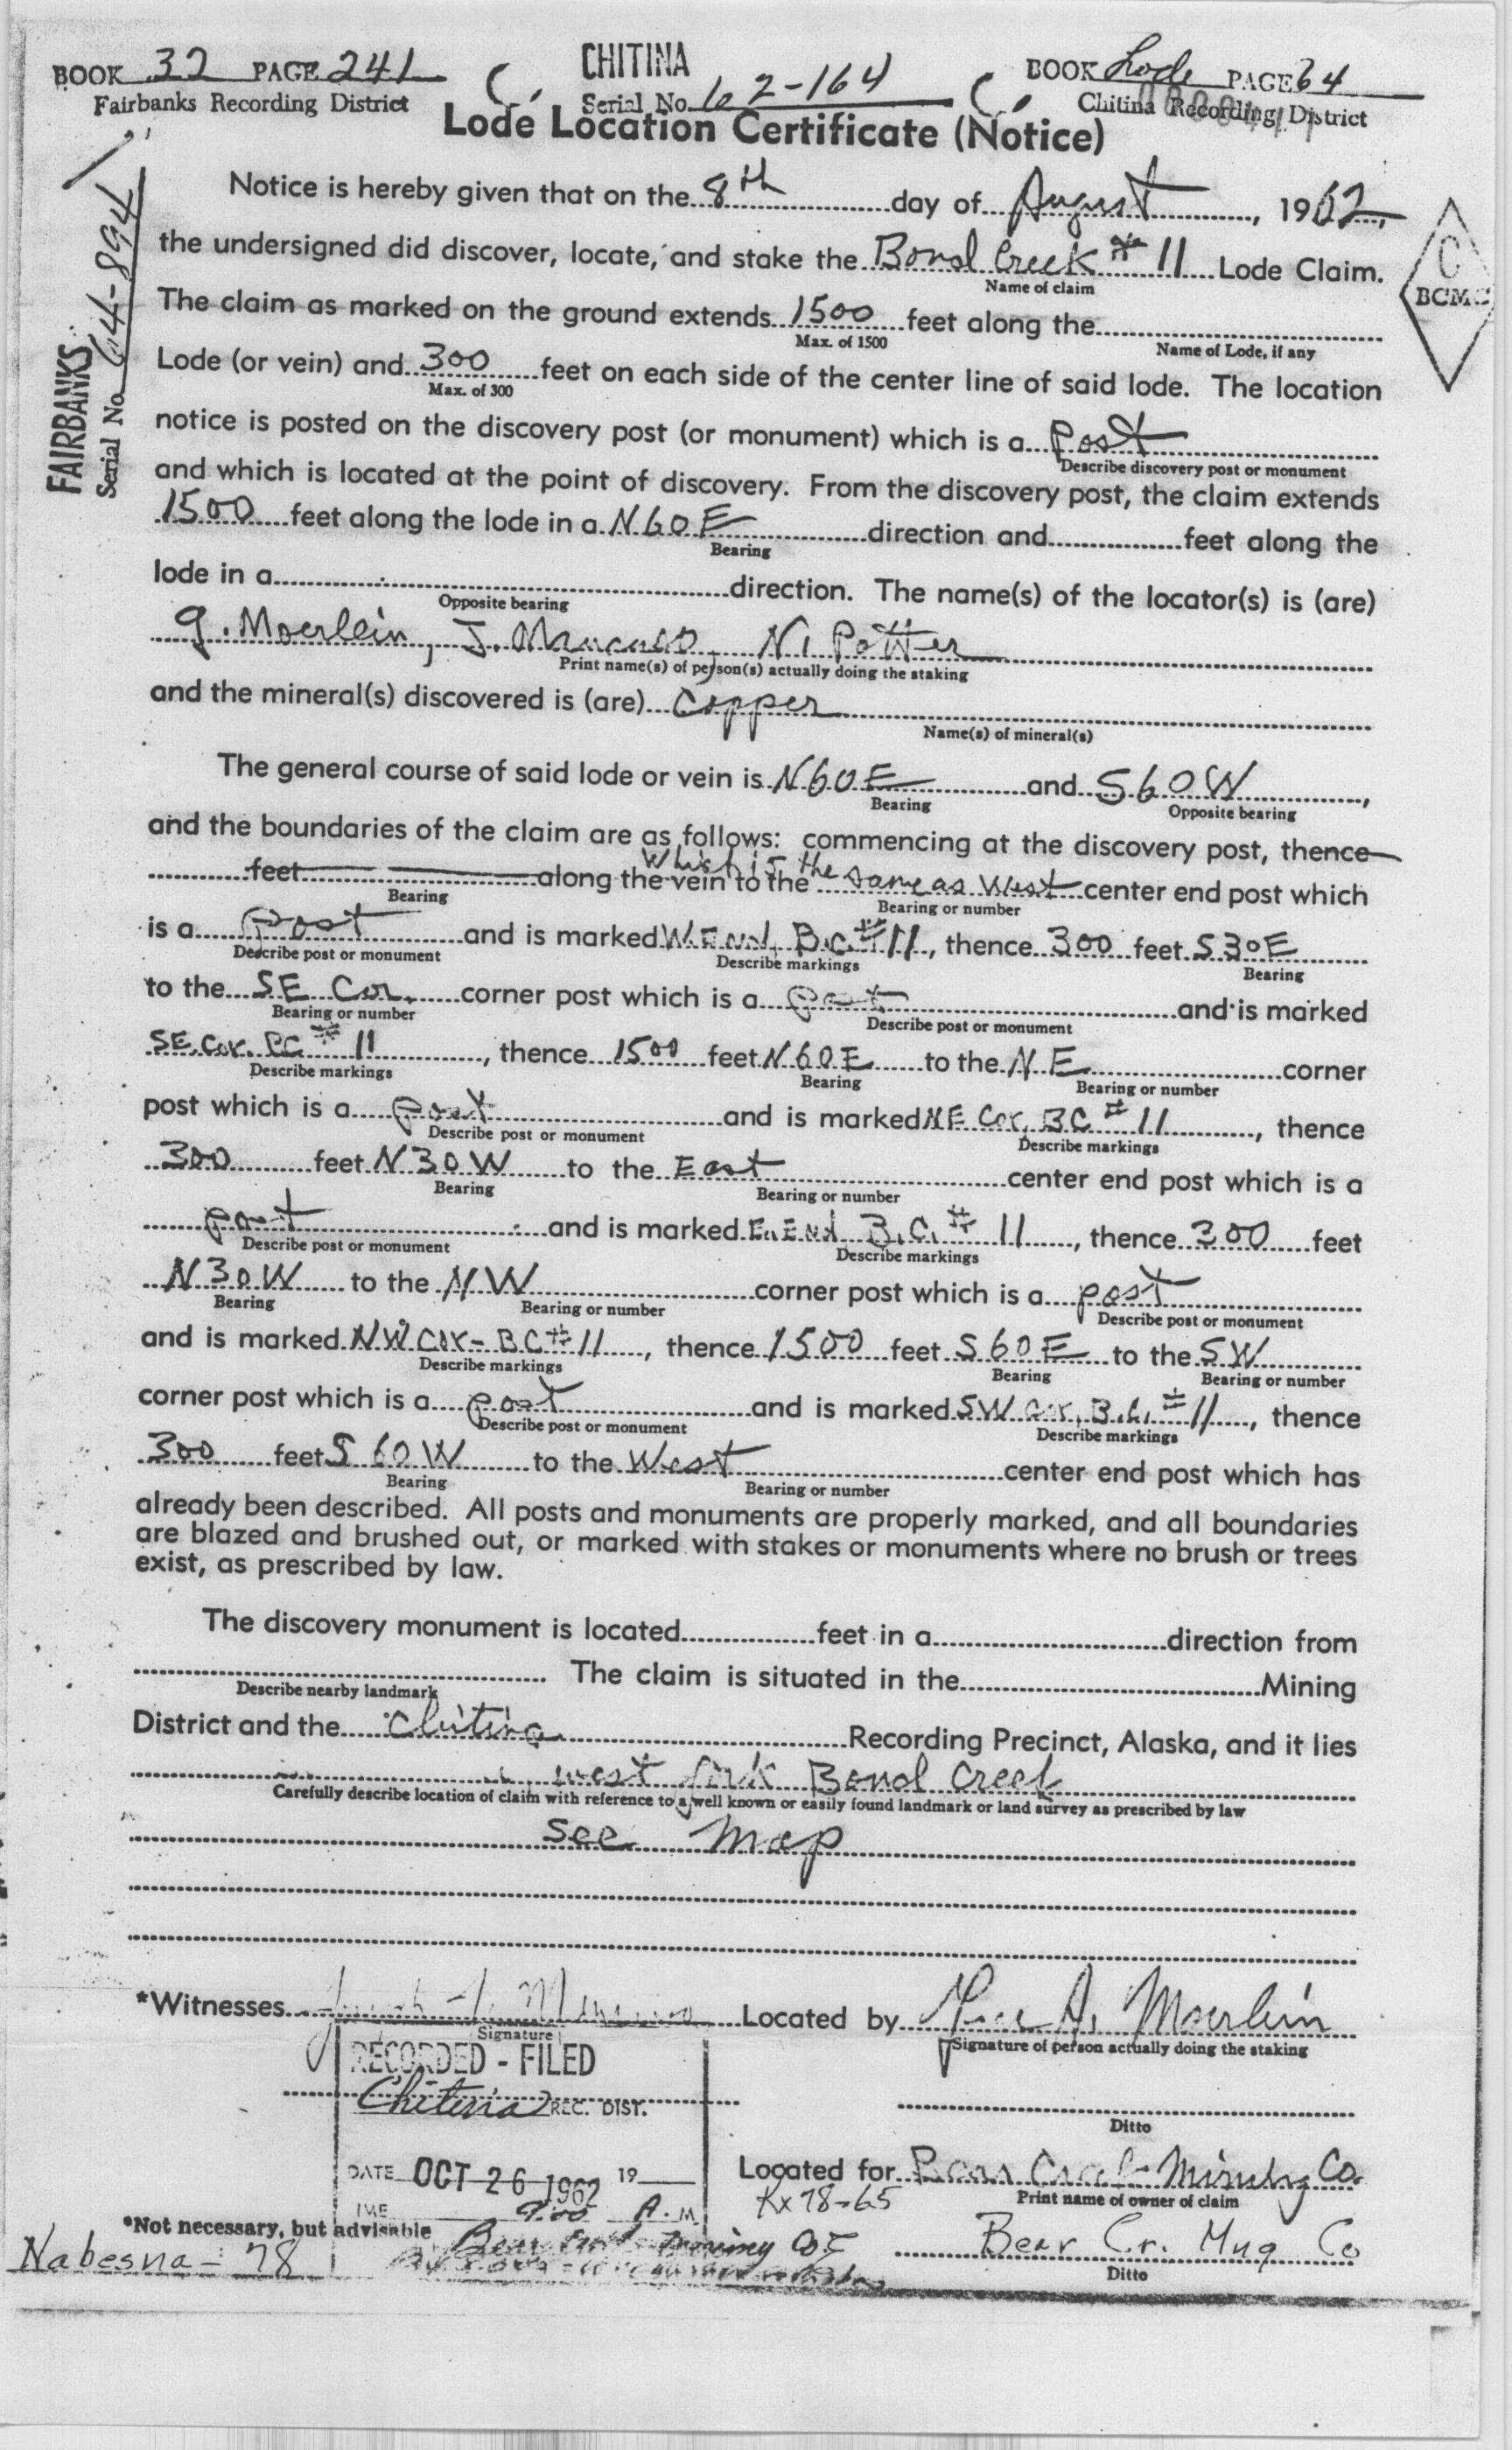 BOOK 32 PAGE 241
Fairbanks Recording District
CHITINA
Serial No. 62-164
BOOK Lode PAGE 64
Chitina Recording District
Lode Location Certificate (Notice)
FAIRBANKS
Serial No. 64-894
C
BCMC
Notice is hereby given that on the 8th day of August, 1962,
the undersigned did discover, locate, and stake the Bond Creek # 11 Lode Claim.
Name of claim
The claim as marked on the ground extends 1500 feet along the
Max. of 1500 Name of Lode, if any
Lode (or vein) and 300 feet on each side of the center line of said lode. The location
Max. of 300
notice is posted on the discovery post (or monument) which is a Post
Describe discovery post or monument
and which is located at the point of discovery. From the discovery post, the claim extends
1500 feet along the lode in a N60E direction and feet along the
Bearing
lode in a direction. The name(s) of the locator(s) is (are)
Opposite bearing
G. Moerlein, J. Mancuso, N. Potter
Print name(s) of person(s) actually doing the staking
and the mineral(s) discovered is (are) Copper
Name(s) of mineral(s)
The general course of said lode or vein is N60E and S60W,
Bearing Opposite bearing
and the boundaries of the claim are as follows: commencing at the discovery post, thence
which is the
feet along the vein to the same as West center end post which
Bearing Bearing or number
is a Post and is marked W. End B.C. #11, thence 300 feet S30E
Describe post or monument Describe markings Bearing
to the SE Cor. corner post which is a post and is marked
Bearing or number Describe post or monument
SE. Cor. BC # 11, thence 1500 feet N60E to the NE corner
Describe markings Bearing Bearing or number
post which is a post and is marked NE Cor. BC # 11, thence
Describe post or monument Describe markings
300 feet N30W to the East center end post which is a
Bearing Bearing or number
post and is marked E. End B.C. # 11, thence 300 feet
Describe post or monument Describe markings
N30W to the NW corner post which is a post
Bearing Bearing or number Describe post or monument
and is marked NW COR- BC #11, thence 1500 feet S60E to the SW
Describe markings Bearing Bearing or number
corner post which is a post and is marked SW Cor. B.C. #11, thence
Describe post or monument Describe markings
300 feet S60W to the West center end post which has
Bearing Bearing or number
already been described. All posts and monuments are properly marked, and all boundaries
are blazed and brushed out, or marked with stakes or monuments where no brush or trees
exist, as prescribed by law.
The discovery monument is located feet in a direction from
The claim is situated in the Mining
Describe nearby landmark
District and the Chitina Recording Precinct, Alaska, and it lies
west fork Bond Creek
Carefully describe location of claim with reference to a well known or easily found landmark or land survey as prescribed by law
See Map
*Witnesses Joseph J. Mancuso Located by A. Moerlein
Signature Signature of person actually doing the staking
RECORDED - FILED
Chitina REC. DIST.
Ditto
DATE OCT 26 1962 19
Located for Bear Creek Mining Co.
Print name of owner of claim
Kx78-65
TIME 9:00 A.M.
*Not necessary, but advisable
Bear Mining Co
Bear Cr. Mng Co
Ditto
Nabesna - 78